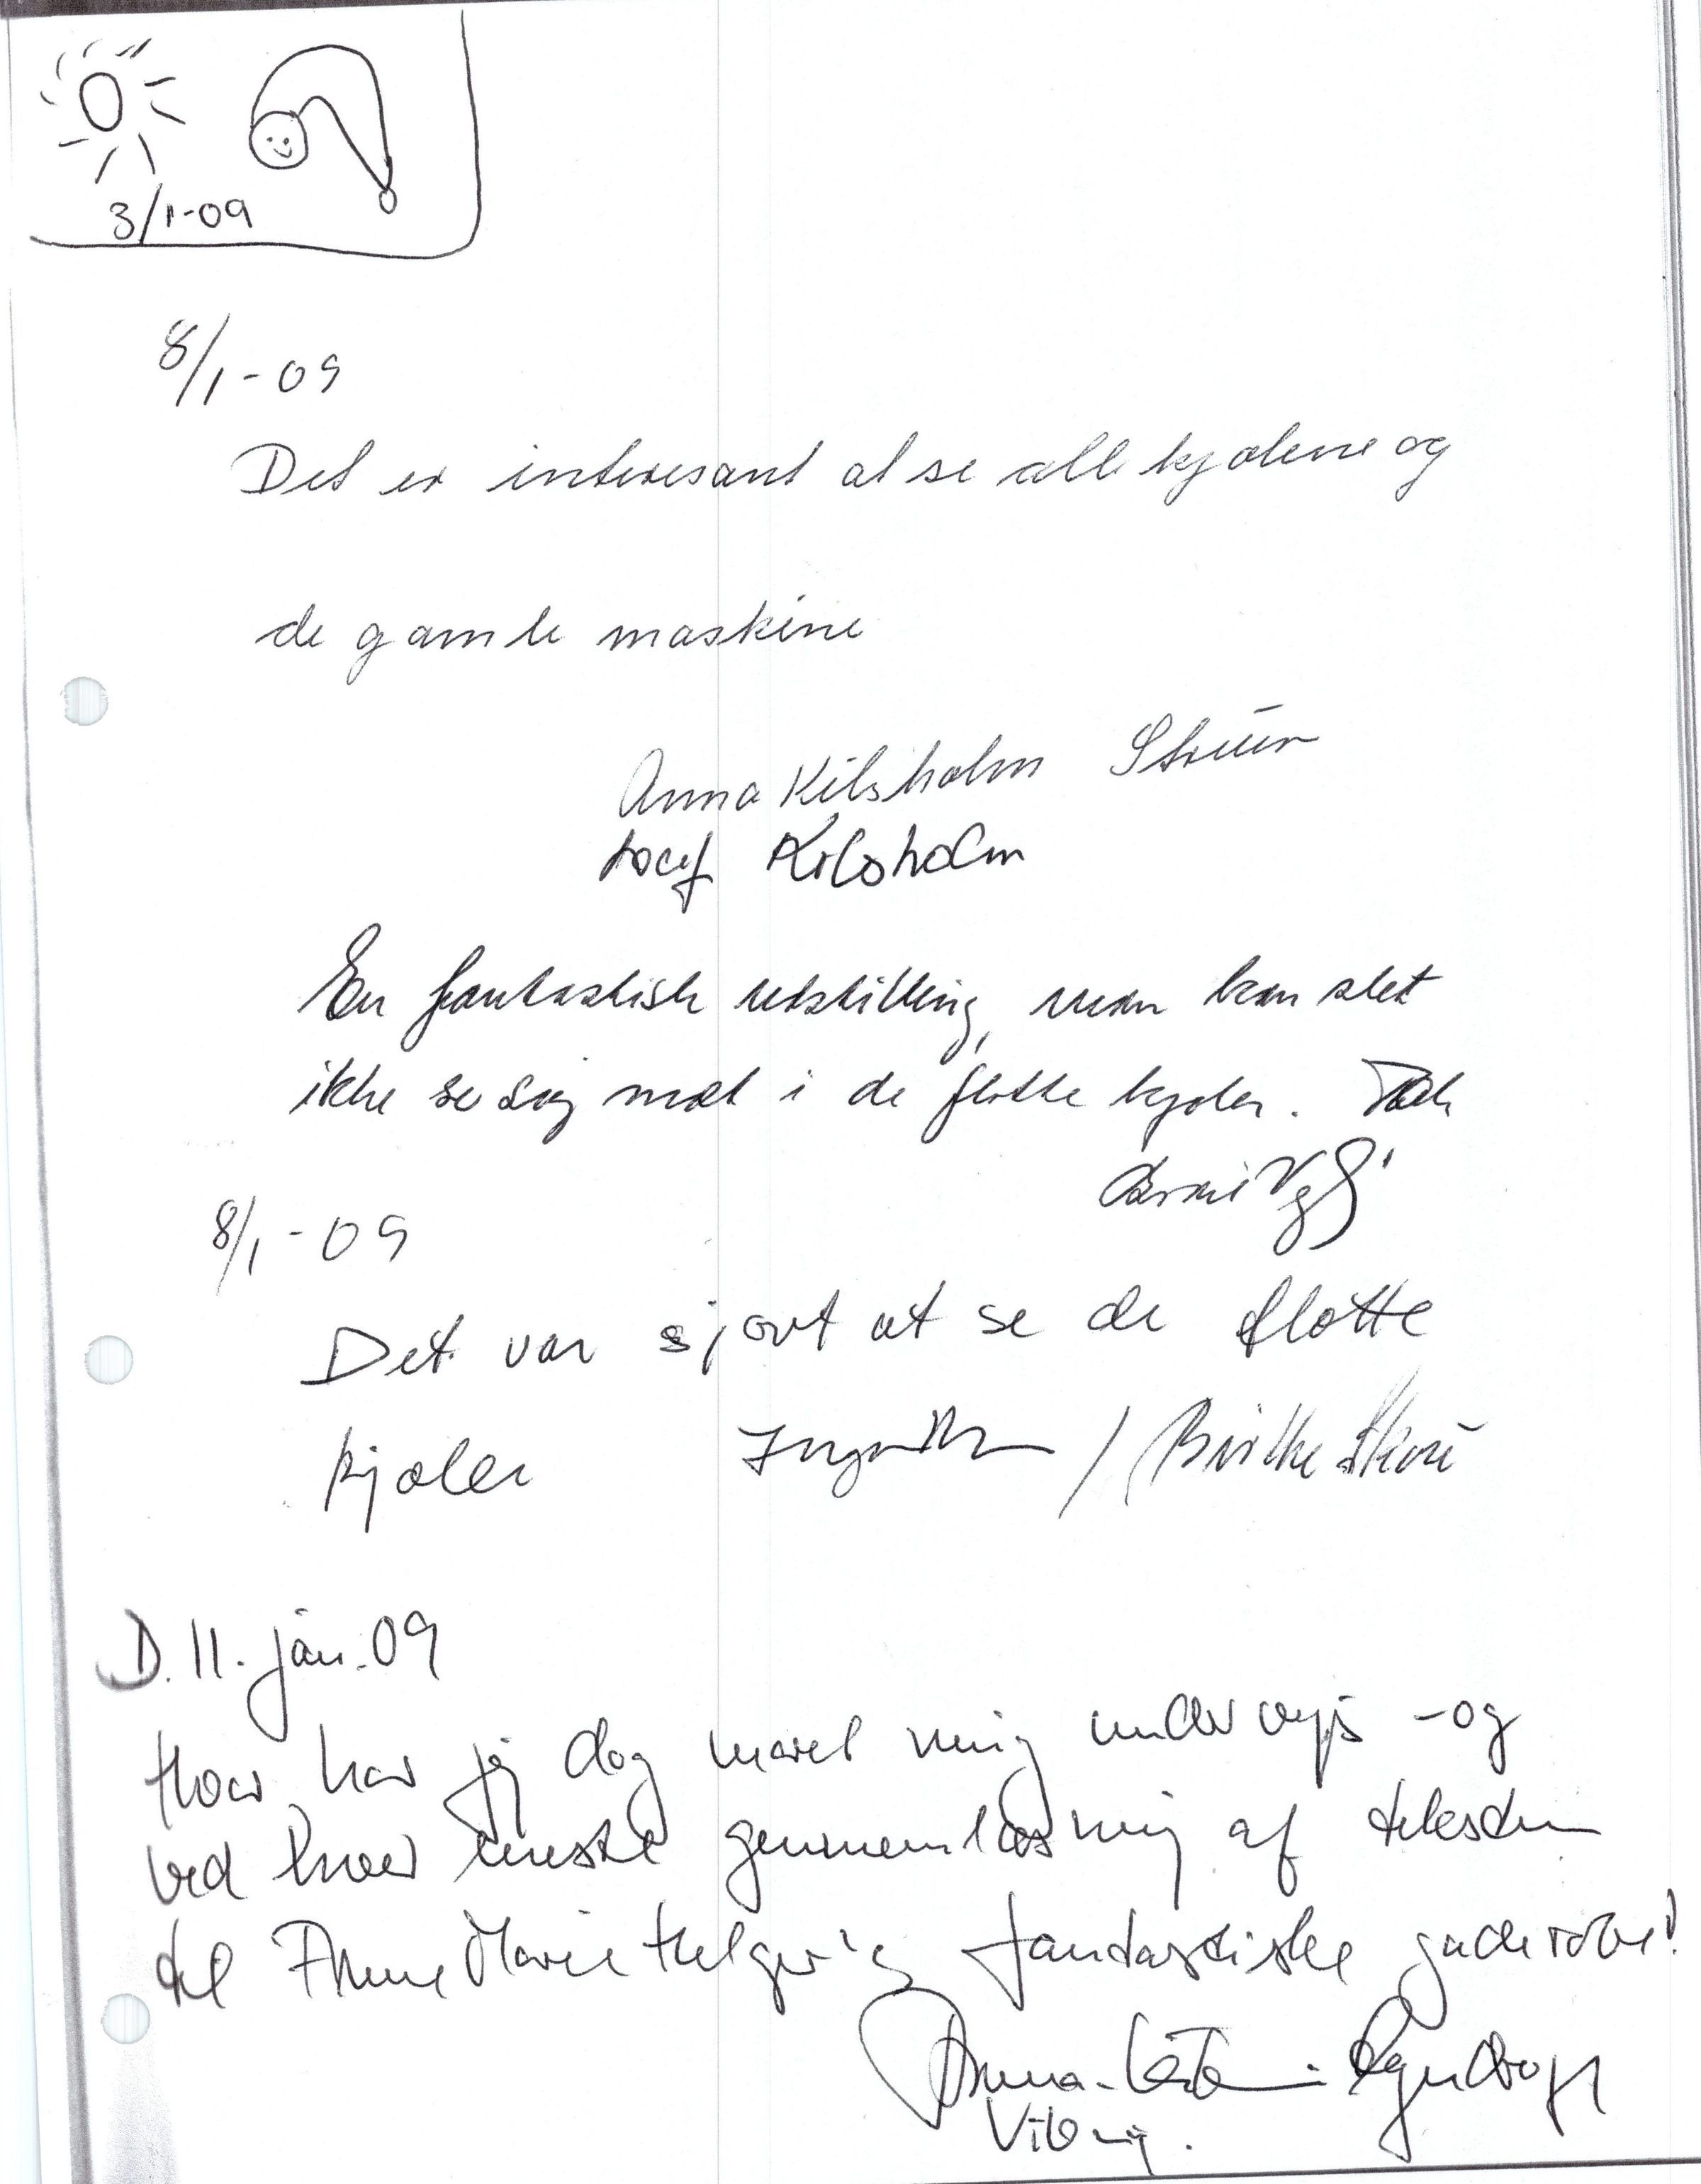 3/1-09
8/1-09
Det er interesant at se alle kjolene og
de gamle maskine
Anna Kilsholm Struer
Kilsholm
En fantastisk udstilling, man kan slet
ikke se sig mæt i de flotte kjoler. Tak
8/1-09
Det var sjovt at se de flotte
kjoler / Birthe
D. 11. jan. 09
Hvor har jeg dog moret mig undervejs - og
ved hver eneste gennemlæsning af teksten
til Anne Marie Helger's fantastiske garderobe!
Anna-
Viborg.